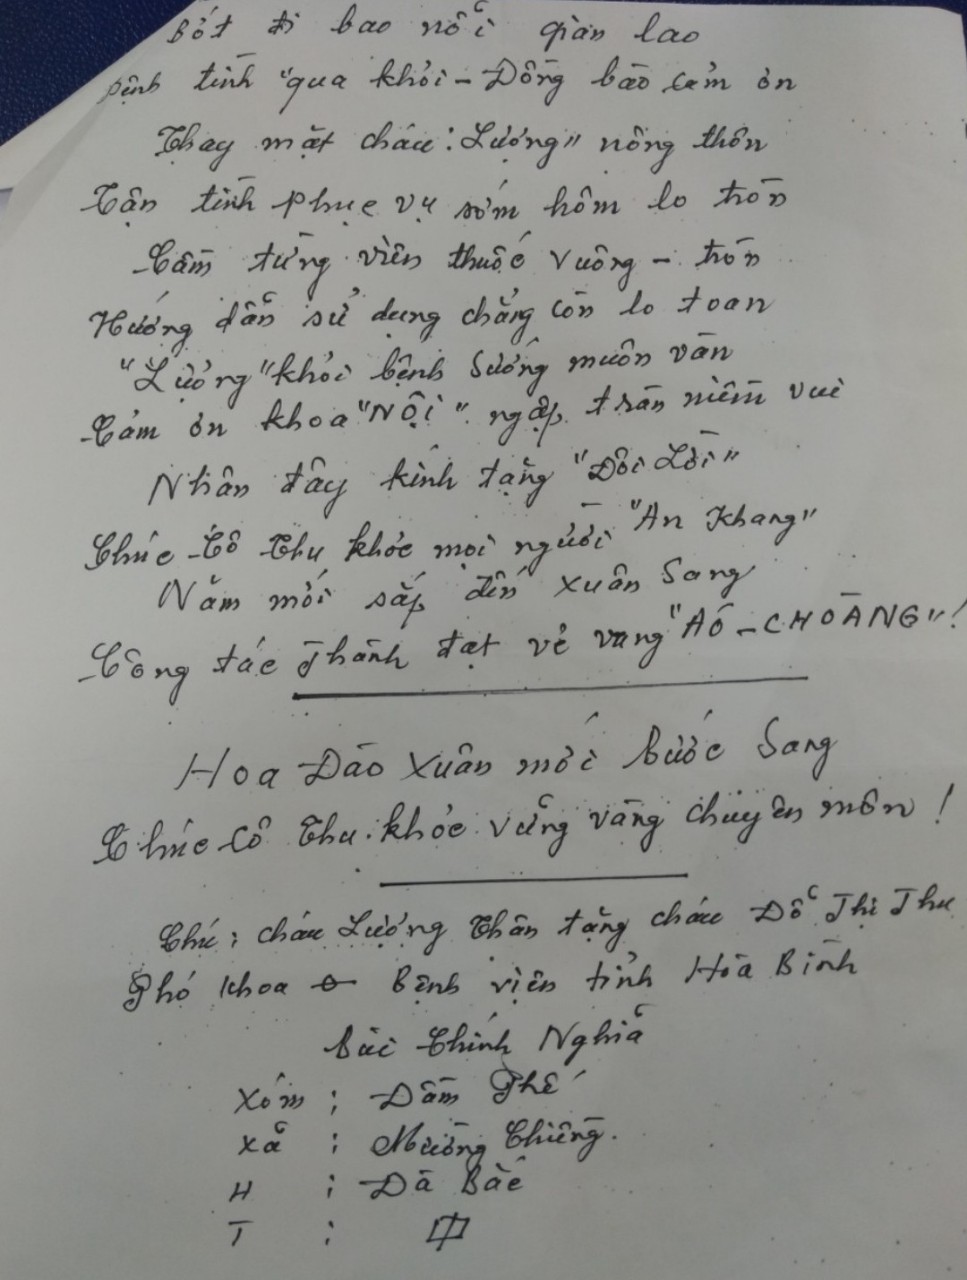 Bớt đi bao nỗi gian lao
Bệnh tình "qua khỏi - Đồng bào cảm ơn
Thay mặt cháu: Lượng" nông thôn
Tận tình phục vụ sớm hôm lo tròn
Cầm từng viên thuốc vuông - tròn
Hướng dẫn sử dụng chẳng còn lo toan
"Lượng" khỏi bệnh sướng muôn vàn
Cảm ơn khoa "NỘI" ngập tràn niềm vui
Nhân đây kính tặng "Đôi Lời"
Chúc Cô Thu khỏe mọi người "An Khang"
Năm mới sắp đến xuân sang
Công tác Thành đạt vẻ vang "AÔ - CHOÀNG"!
Hoa Đào Xuân mới bước sang
Chúc Cô Thu khỏe vững vàng chuyên môn!
Chú: cháu Lượng Thân tặng cháu Đỗ Thị Thu
Phó khoa Bệnh viện tỉnh Hòa Bình
Bùi Chính Nghĩa
Xóm : Đầm Phế
Xã : Mường Chiềng.
H : Đà Bắc
T :